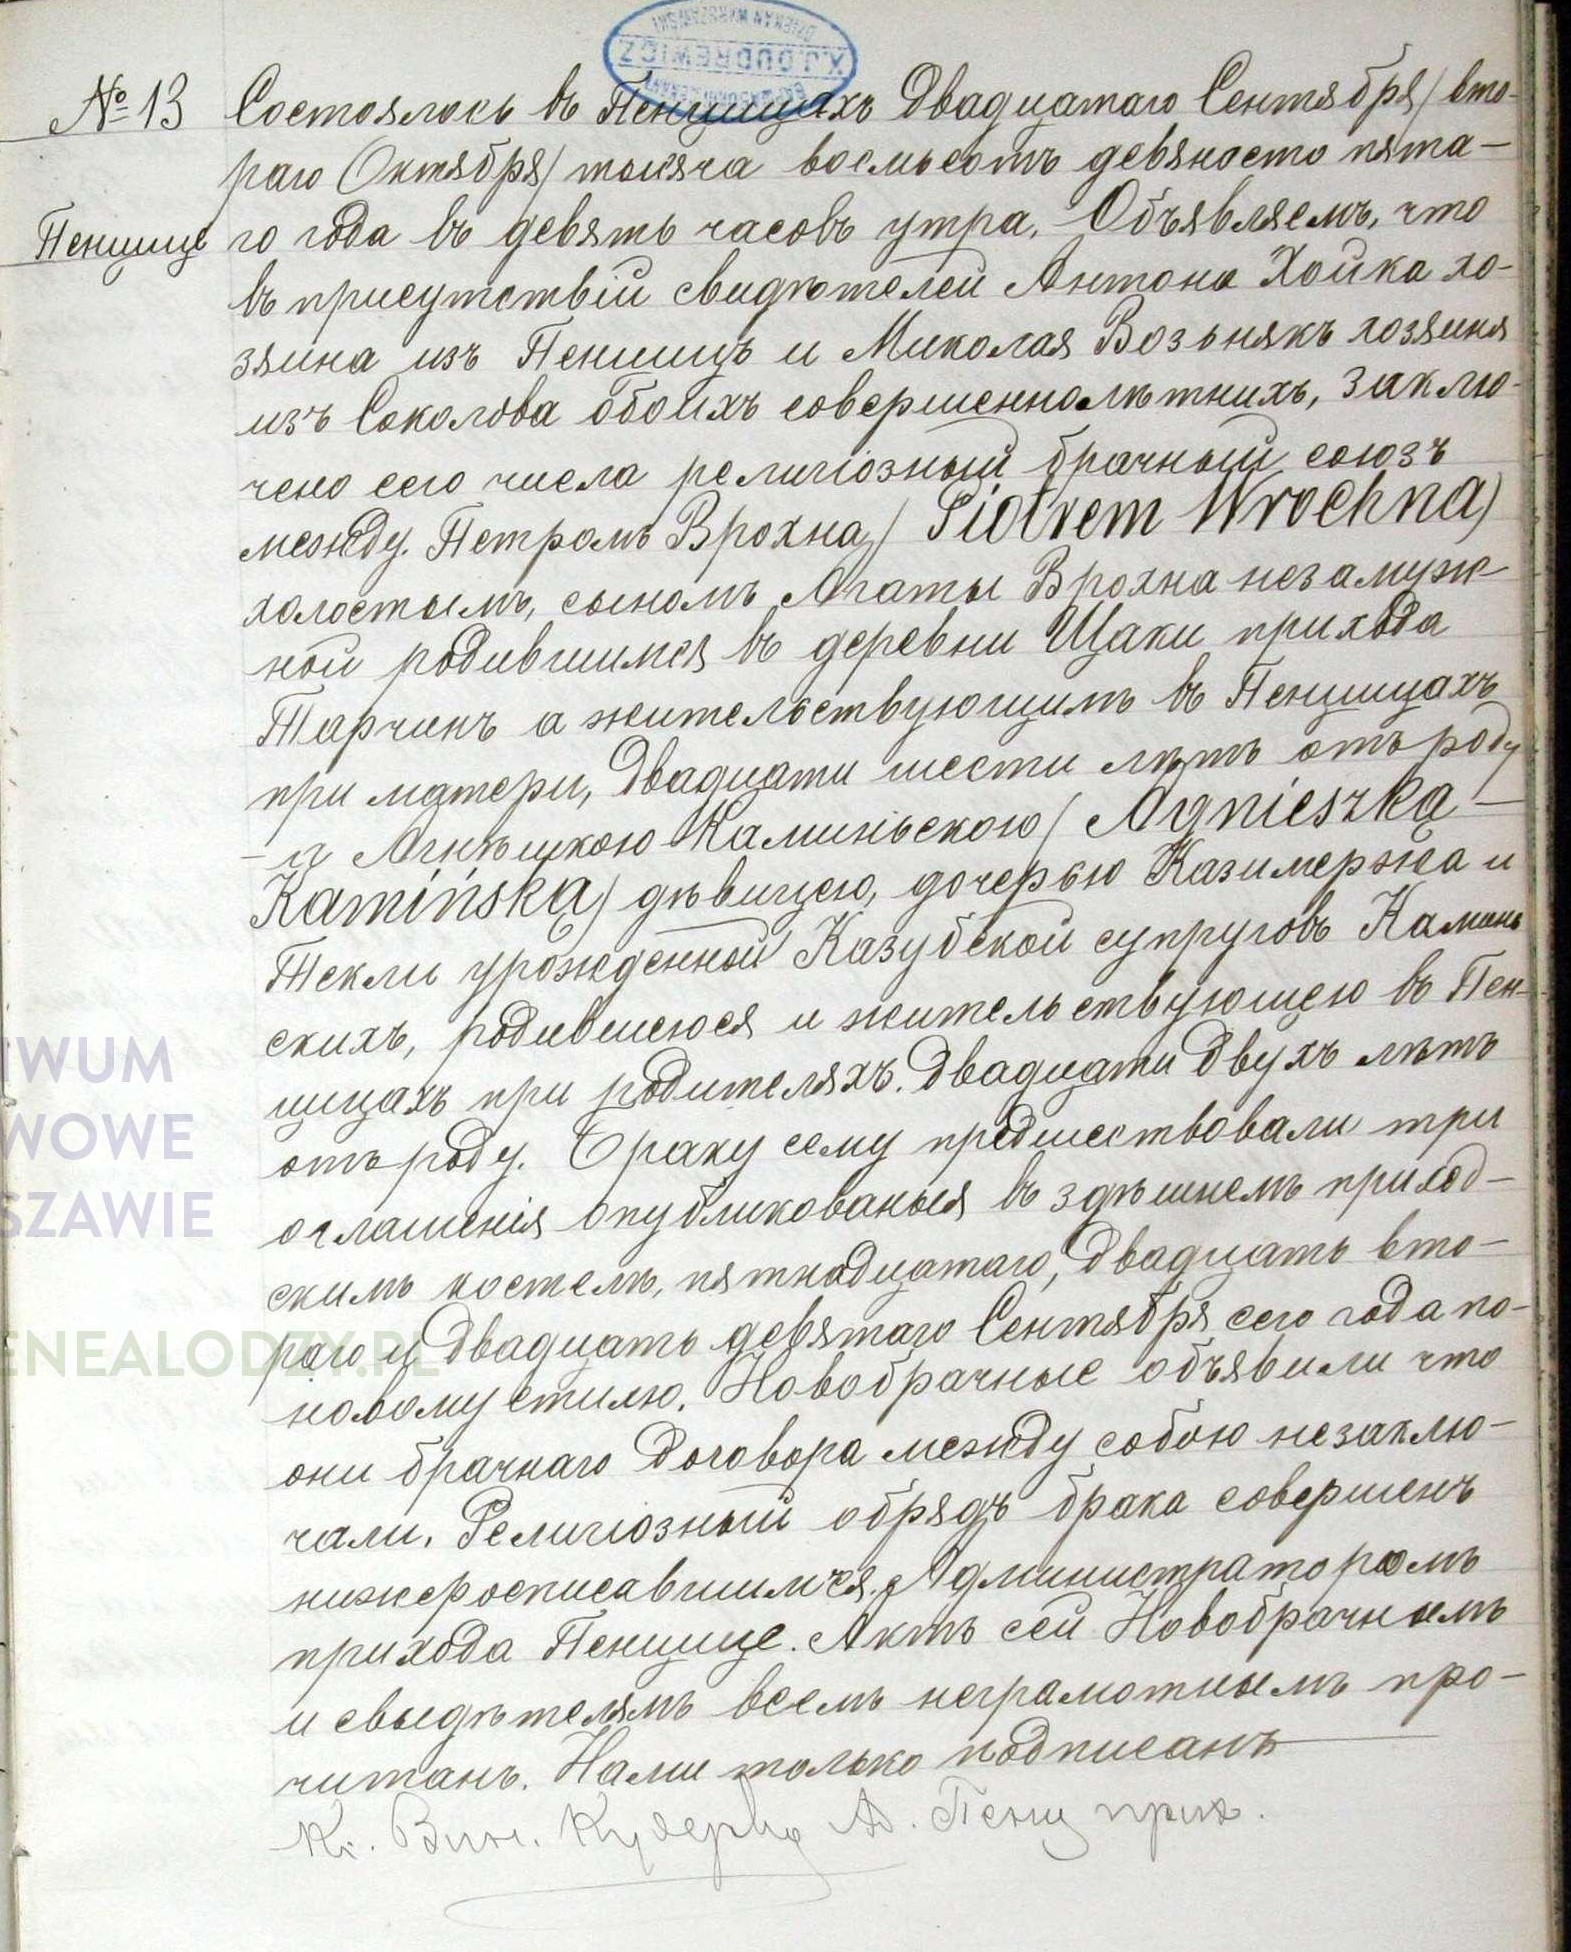 X. J. DUDREWICZ
DZIEKAN WARSZAWSKI
№ 13 Состоялось въ Пенщицахъ двадцатаго Сентября / вто-
раго Октября / тысяча восмьсотъ девяносто пята-
Пенщице го года въ девять часовъ утра. Объявляемъ, что
въ присутствіи свидѣтелей Антона Хойка хо-
зяина изъ Пенщицъ и Миколая Возьнякъ хозяина
изъ Соколова обоихъ совершеннолѣтнихъ, заклю-
чено сего числа религіозный брачный союзъ
между Петромъ Врохна / Piotrem Wrochna)
холостымъ, сыномъ Агаты Врохна незамуж-
ной родившимся въ деревни Щаки прихода
Тарчинъ а жительствующимъ въ Пенщицахъ
при матери, двадцати шести лѣтъ отъ роду
– а Агнѣшкою Каминьскою / Agnieszką –
Kamińską) дѣвицею, дочерью Казимержа и
Текли урожденной Казубской супруговъ Каминь
скихъ, родившеюся и жительствующею въ Пен-
щицахъ при родителяхъ. двадцати двухъ лѣтъ
отъ роду. Браку сему предшествовали три
оглашенія опубликованыя въ здѣшнемъ приход-
скимъ костелѣ, пятнадцатаго, двадцать вто-
раго и двадцать девятаго Сентября сего года по-
новому стилю. Новобрачные объявили что
они брачнаго договора между собою незаклю-
чали. Религіозный обрядъ брака совершенъ
нижеросписавшимся Администраторомъ
прихода Пенщице. Актъ сей Новобрачнымъ
и свыдѣтелямъ всемъ неграмотнымъ про-
читанъ. Нами только подписанъ
Кс. Вин. Ад. Пенщ прих.
IWUM
WOWE
SZAWIE
ENEALODZY.PL